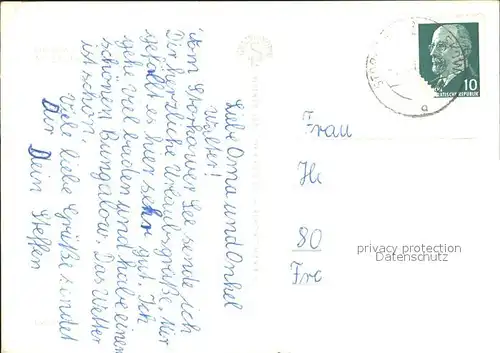 Liebe Oma und Onkel
Walter!
Vom Storkower See sende ich
Dir herzliche Urlaubsgrüße. Mir
gefällt es hier sehr gut. Ich
gehe viel baden und habe einen
schönen Bungalow. Das Wetter
ist schön.
Viele liebe Grüße sendet
Dir Dein Steffen
Frau
80
Fre
10
privacy protection
Sammleraktion